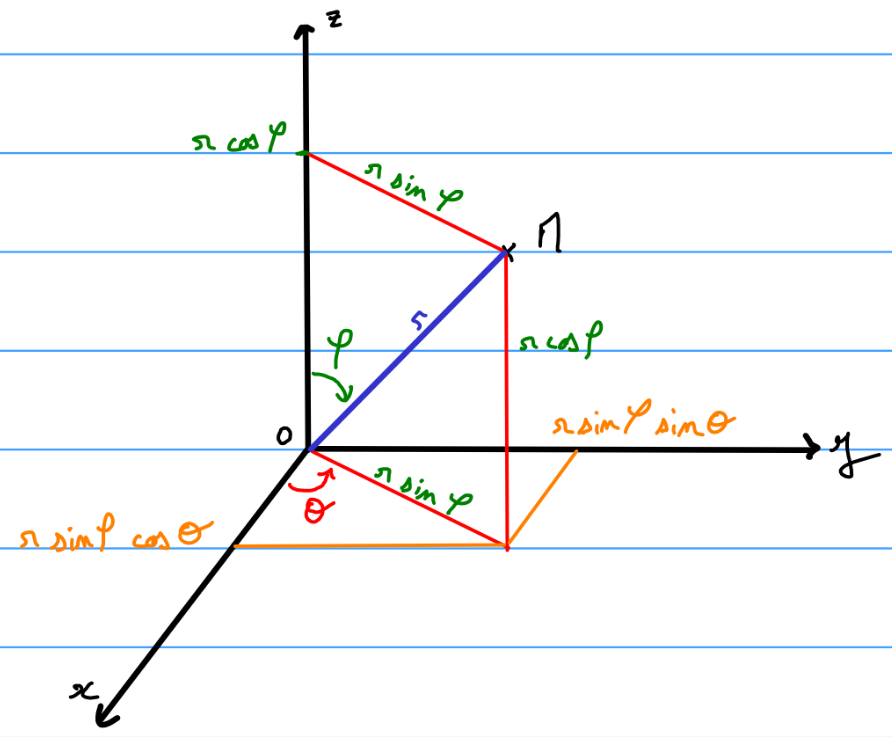 z
r cos φ
r sin φ
M
r
φ
r cos φ
O
r sin φ sin θ
y
θ
r sin φ
r sin φ cos θ
x